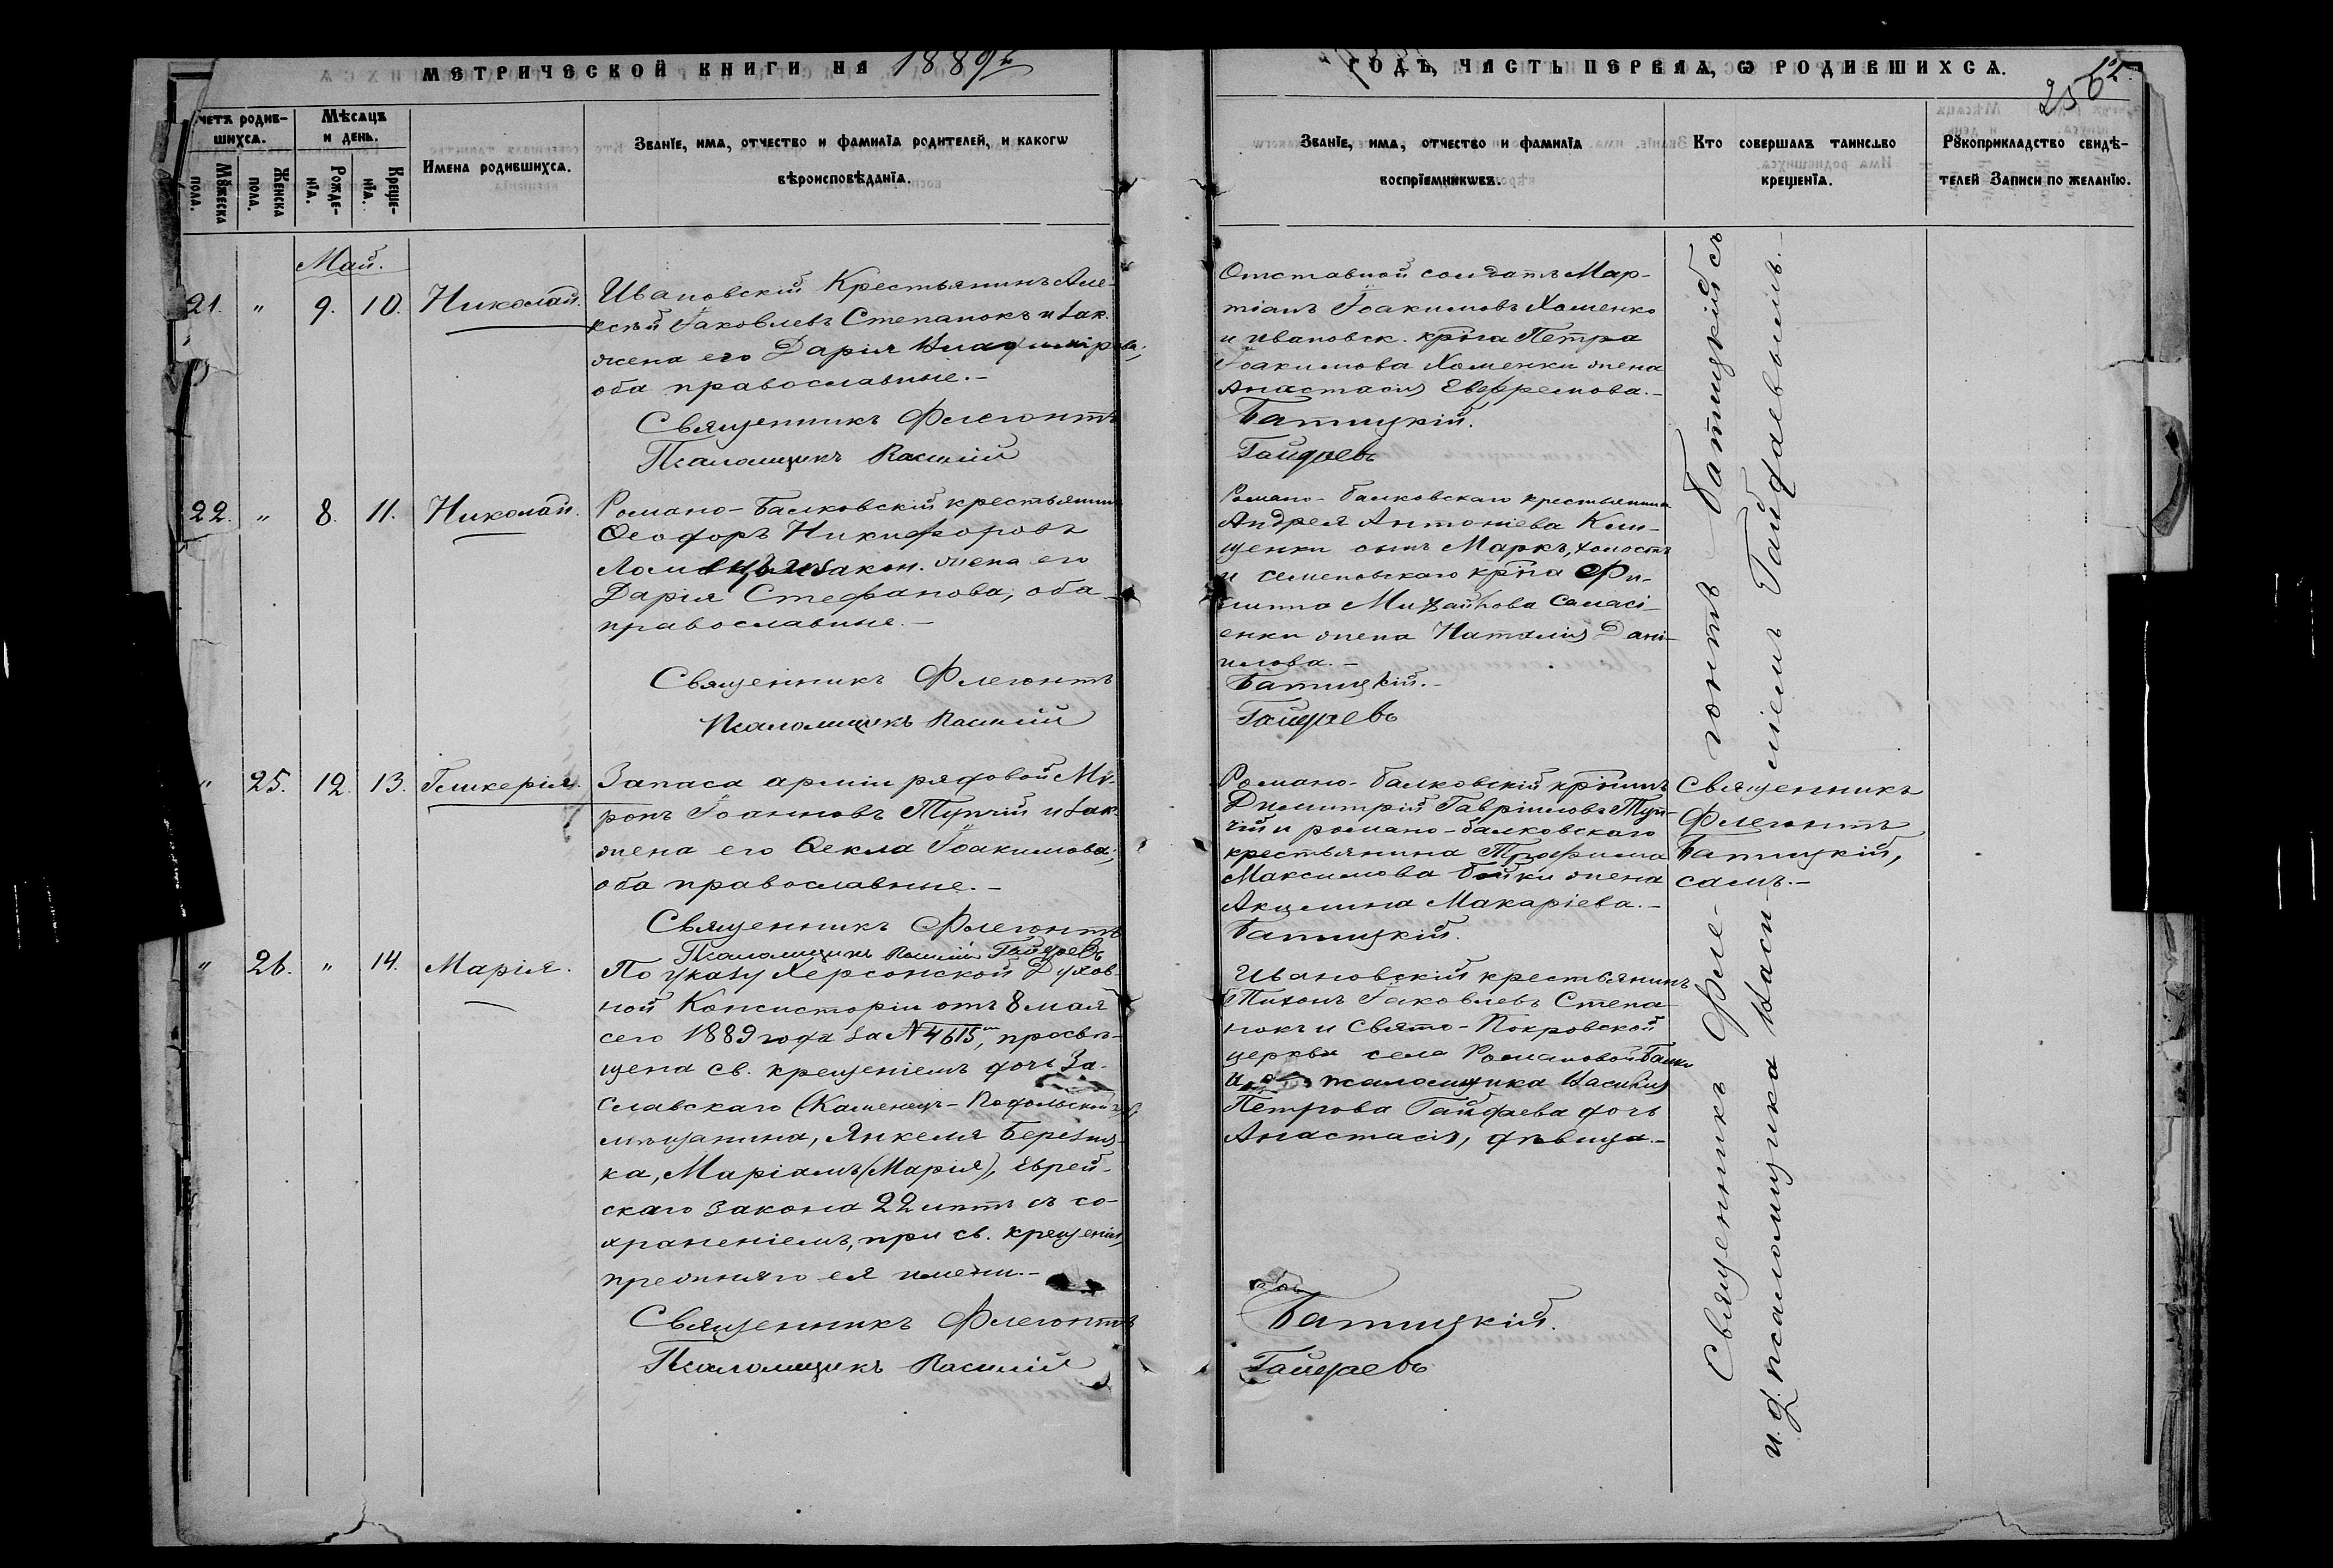 МЕТРИЧЕСКОЙ КНИГИ НА 1889 г.
ГОДЪ, ЧАСТЬ ПЕРВАЯ, Ѡ РОДИВШИХСЯ.
256
Счетъ родившихся.
Мужеска пола.
Женска пола.
Мѣсяцъ и день.
Рожденія.
Крещенія.
Имена родившихся.
Званіе, имя, отчество и фамилія родителей, и какогѡ
вѣроисповѣданія.
Званіе, имя, отчество и фамилія
воспріемникѡвъ.
Кто совершалъ таинство
крещенія.
Рукоприкладство свидѣ-
телей записи по желанію.
Май.
21. " 9. 10. Николай.
Ивановскій Крестьянинъ Але-
ксѣй Іаковлевъ Степанокъ и зак.
жена его Дарія Владимірова;
оба православные.-
Священникъ Флегонтъ
Псаломщикъ Василій
Отставной солдатъ Мар-
тіанъ Іоакимовъ Хоменко
и ивановск. кр-на Петра
Іоакимова Хоменки жена
Анастасія Евфремова.-
Батицкій.
Гайдаевъ
22. " 8. 11. Николай.
Романо-Балковскій крестьянинъ
Ѳеодоръ Никифоровъ
закон. жена его
Дарія Стефанова, оба
православные.-
Священникъ Флегонтъ
Псаломщикъ Василій
Романо-балковскаго крестьянина
Андрея Антоніева Кли-
щенки сынъ Маркъ, холостъ
и семеновскаго кр-на Фи-
липпа Михайлова Саласі-
енки жена Наталія Дані-
илова.-
Батицкій.-
Гайдаевъ
" 25. 12. 13. Гликерія.
Запаса арміи рядовой Мѵ-
ронъ Іоанновъ Тупчій и зак.
жена его Ѳекла Іоакимова;
оба православные.-
Священникъ Флегонтъ
Псаломщикъ Василій Гайдаевъ
Романо-балковскій кр-нинъ
Димитрій Гавріиловъ Туп-
чій и романо-балковскаго
крестьянина Трофима
Максимова Бойки жена
Акилина Макаріева.-
Батицкій.
Священникъ
Флегонтъ
Батицкій,
самъ.-
" 26. " 14. Марія.
По указу Херсонской Духов-
ной Консисторіи отъ 8 мая
сего 1889 года за № 4615, просвѣ-
щена св. крещеніемъ дочь За-
славскаго (Каменец-Подольской г.)
мѣщанина, Янкеля Березня-
ка, Маріамъ (Марія), Еврей-
скаго закона 22 лѣтъ съ со-
храненіемъ, при св. крещеніи,
прежняго ея имени.-
Священникъ Флегонтъ
Псаломщикъ Василій
Ивановскій крестьянинъ
Тихонъ Іаковлевъ Степа-
нокъ и Свято-Покровской
церкви села Романовой Балки
псаломщика Василія
Петрова Гайдаева дочь
Анастасія, дѣвица.-
Батицкій.
Гайдаевъ
Священникъ Фле-гонтъ Батицкій съ
и. д. псаломщика Васи-ліемъ Гайдаевымъ.-